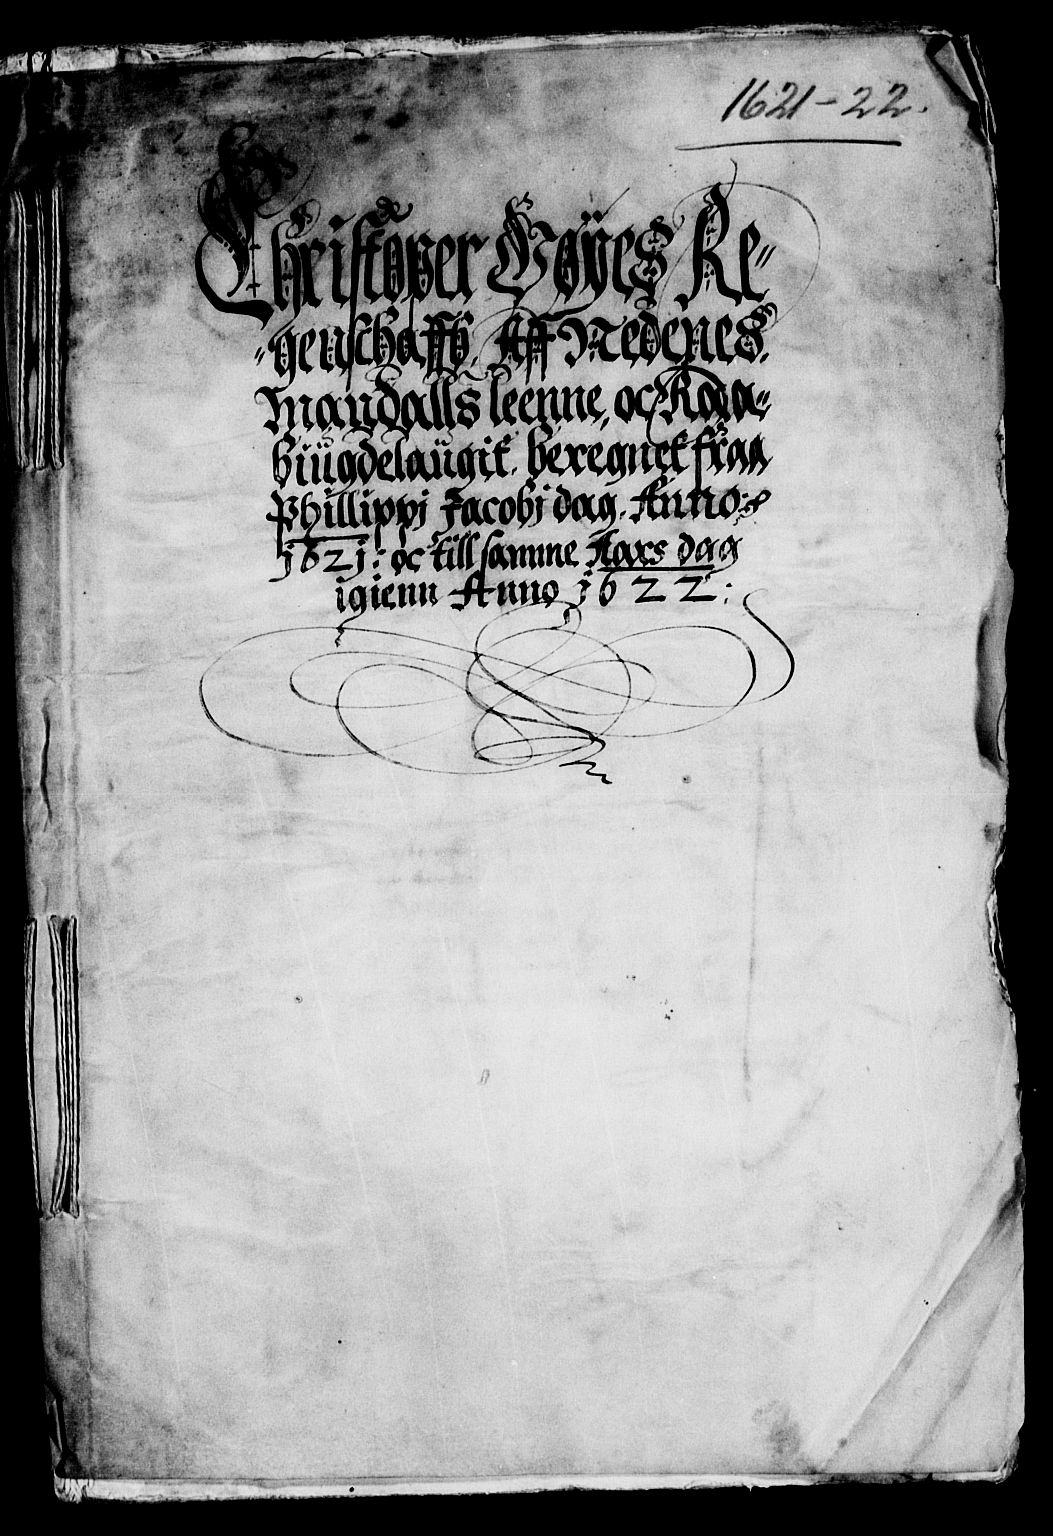 1621-22.
Christoper Gøÿes Re„
„genschaff, Aff Nedenes,
Mandalls leenne, oc Raaa„
biugdelaugit, beregnet fraa
Phillippj Jacobj dag. Anno
j62j: oc till samme Aars dag
igienn Anno j622: